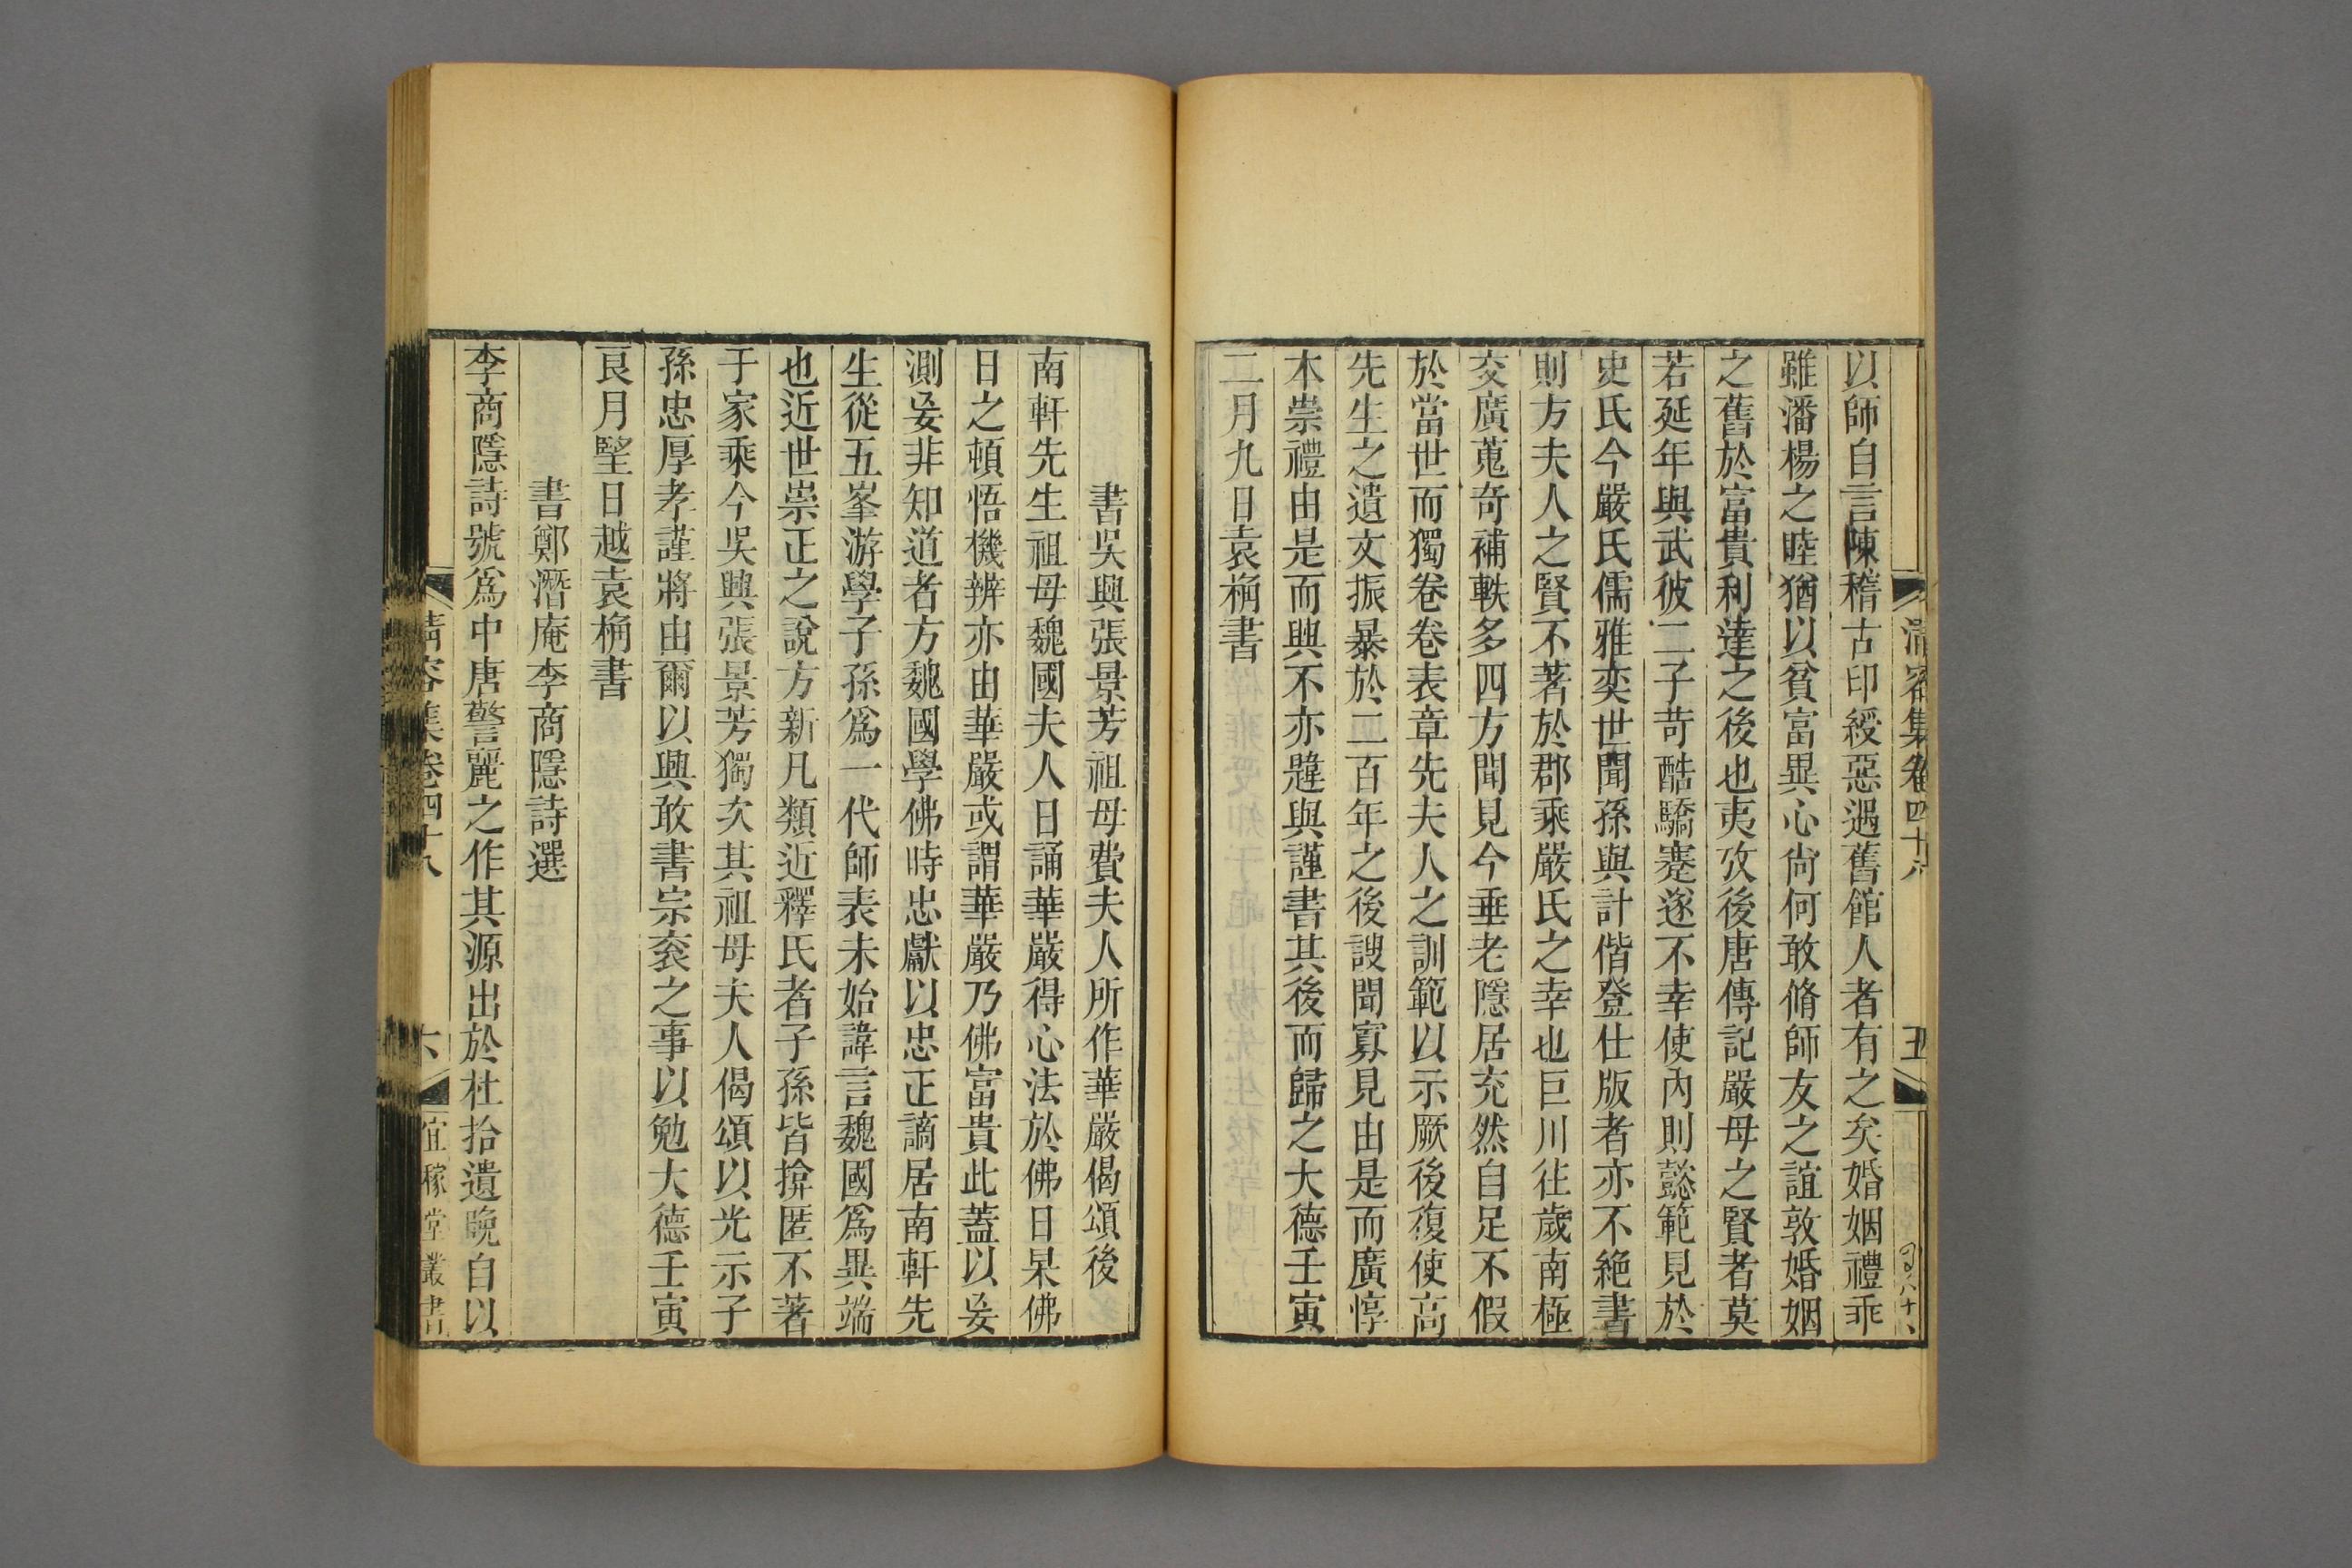 清容集卷四十八
五
以師自言陳稽古印綬惡遇舊館人者有之矣婚姻禮乖
雖潘楊之睦猶以貧富異心尙何敢脩師友之誼敦婚姻
之舊於富貴利達之後也夷攷後唐傳記嚴母之賢者莫
若延年與武彼二子苛酷驕蹇遂不幸使內則懿範見於
史氏今嚴氏儒雅奕世聞孫與計偕登仕版者亦不絶書
則方夫人之賢不著於郡乘嚴氏之幸也巨川往歲南極
交廣蒐奇補軼多四方聞見今垂老隱居充然自足不假
於當世而獨卷卷表章先夫人之訓範以示厥後復使高
先生之遺文振暴於二百年之後謏聞寡見由是而廣惇
本崇禮由是而興不亦韙與謹書其後而歸之大德壬寅
二月九日袁桷書
書吳興張景芳祖母費夫人所作華嚴偈頌後
南軒先生祖母魏國夫人日誦華嚴得心法於佛日杲佛
日之頓悟機辨亦由華嚴或謂華嚴乃佛富貴此蓋以妄
測妄非知道者方魏國學佛時忠獻以忠正謫居南軒先
生從五峯游學子孫爲一代師表未始諱言魏國爲異端
也近世崇正之說方新凡類近釋氏者子孫皆揜匿不著
于家乘今吳興張景芳獨次其祖母夫人偈頌以光示子
孫忠厚孝謹將由爾以興敢書宗衮之事以勉大德壬寅
良月堅日越袁桷書
書鄭潛庵李商隱詩選
李商隱詩號爲中唐警麗之作其源出於杜拾遺晚自以
清容集卷四十八
六
宜稼堂叢書